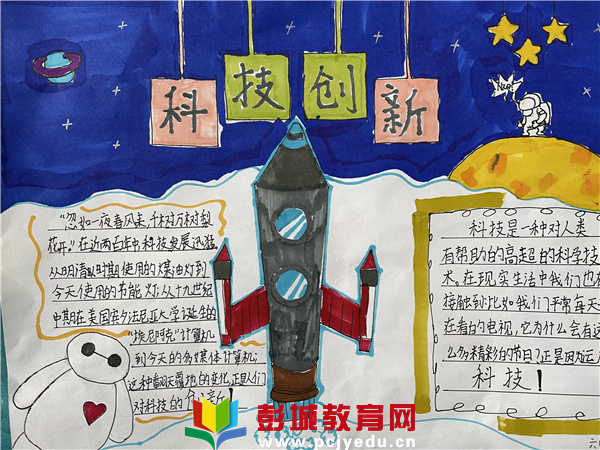 科技创新
Nice!
"忽如一夜春风来,千树万树梨
花开"在近两百年中科技发展迅猛
从明清时期使用的煤油灯到
今天使用的节能灯从十九世纪
中期在美国宾夕法尼亚大学诞生的
"埃尼阿克"计算机
到今天的多媒体计算机
这种翻天覆地的变化正是人们
对科技的创新!
科技是一种对人类
有帮助的高超的科学技
术。在现实生活中我们也
接触到:比如我们平常每天
在看的电视,它为什么会有这
么多精彩的节目?正是因为
科技!
彭城教育网
www.pcjyedu.cn